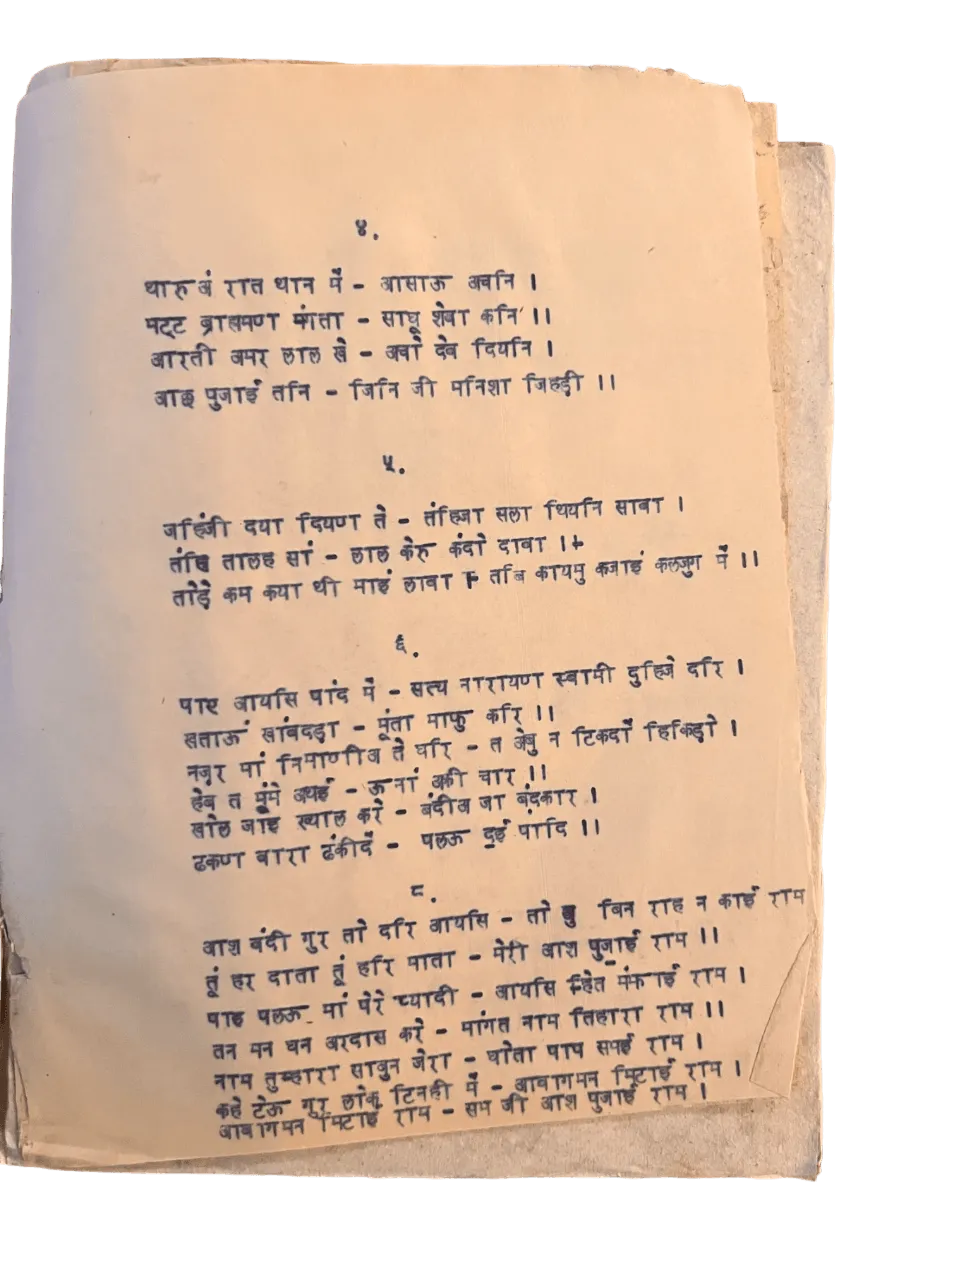 ४.
थारुअं रात थान में - आसाऊ अचनि ।
पट्ट ब्राहमण मंगता - साधू शेवा कनि ।।
आरती अमर लाल खे - अचो देव दियनि ।
आऊ पुजाई तनि - जिनि जी मनिशा जिहड़ी ।।
५.
जहिंजी दया दियण ते - तंहिजा सला थियनि सावा ।
तंखि तालह सां - लाल केरु कंदो दावा ।।
तोड़े कम कया थी माइं लावा - तबि कायमु कजाइं कलजुग में ।।
६.
पाए आयसि पांद में - सत्य नारायण स्वामी दुहिजे दरि ।
खताऊं सांबदड़ा - मूंता माफु करि ।।
नज़र मां निमाणीअ ते धरि - त अेबु न टिकदों हिकिड़ो ।
हेब त मूंमे अथई - ऊ नां अकी चार ।।
खोल जांइ ख्याल करे - बंदीअ जा बंदकार ।
ढकण वारा ढंकीदें - पलऊ दुई पांदि ।।
८.
आश बंदी गुर तो दरि आयसि - तो बिन राह न काई राम
तूं हर दाता तूं हरि माता - मेरी आश पुजाई राम ।।
पाइ पलऊ मां पेरे प्यादी - आयसि हेत मंझाई राम ।
तन मन धन अरदास करे - मांगत नाम तिहारा राम ।।
नाम तुम्हारा साबुन जेरा - धोता पाप सभई राम ।
कहे टेऊ गुर लोक टिनही में - आवागमन मिटाई राम ।
आवागमन मिटाई राम - सभ जी आश पुजाई राम ।